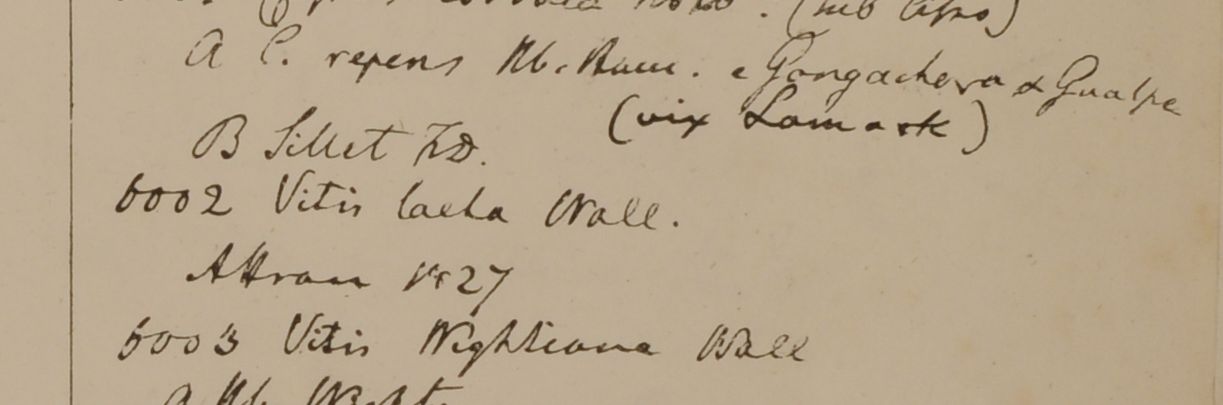 A C. repens Hb. Ham. e Gongachora & Gualpa
(vix Lamark)
B Sillet FD.
6002 Vitis laeta Wall.
Attran 1827
6003 Vitis Wightiana Wall
a Hb. Wight.